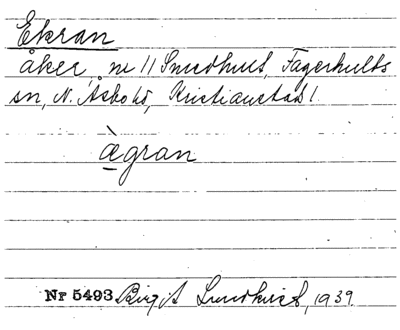 Ekran
åker, nr 11 Smedhult, Fagerhults
sn, N. Åsbo hd, Kristianstad l
ägran
Nr 5493 Birgit Lundkvist, 1939